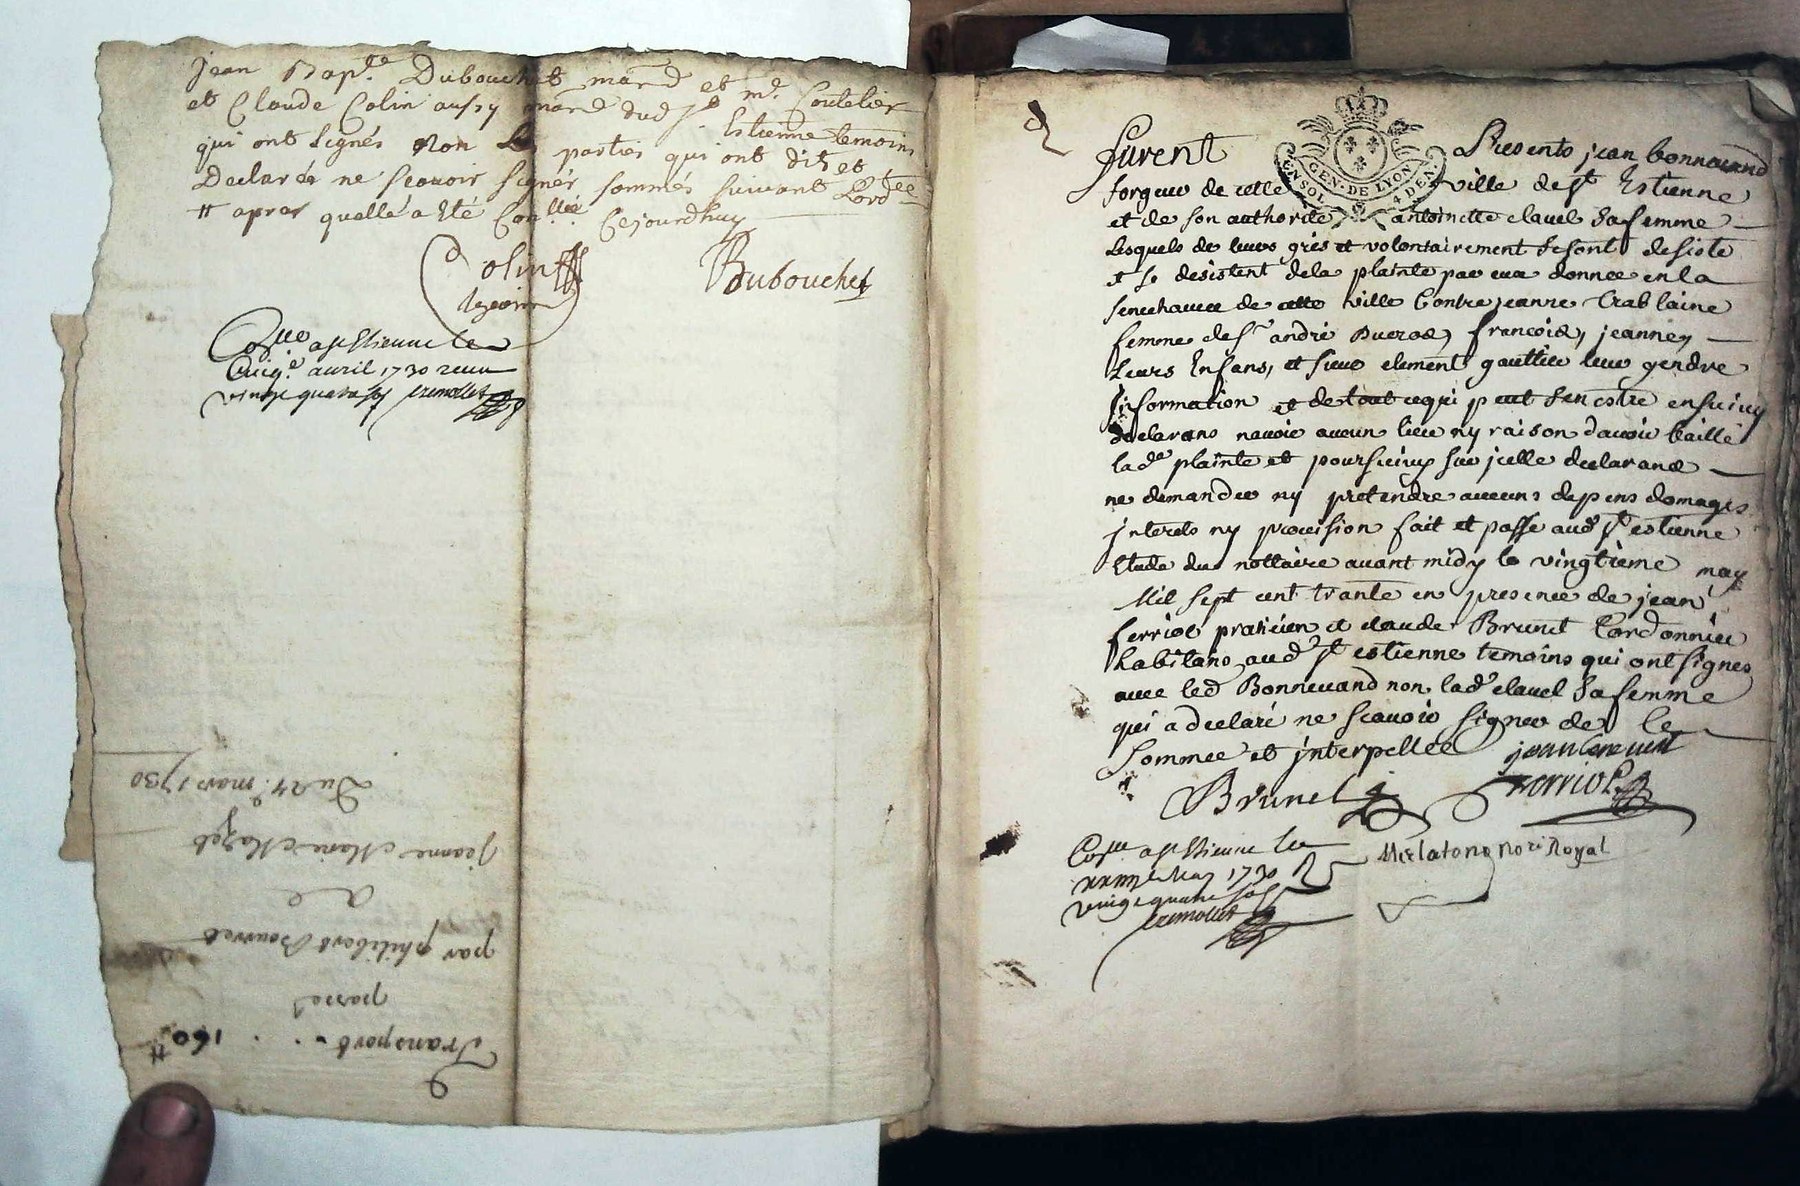 Jean Bap.te Dubouchet mard et me. Coutelier
et Claude Colin aussy mard dud St. Estienne temoins
qui ont signés non les parties qui ont dit et
Declaré ne scavoir signer sommés suivant Lordce
apres quelle a eté Con.llée Cejourdhuy
Colin
Dubouchet
Con.llé a St Etienne le
avril 1730 receu
vingt quatre s. Cremollet
Transport . . 160
passé
par philibert Bourret
a e
Jeanne Marie Mazet
Du 24e. mars 1730
GEN. DE LYON
4 DEN.
furent Presents jean bonnevand
forgeur de cette ville de St Estienne
et de son authorité antoinette clavel sa femme
lesquels de leurs grés et volontairement se sont desisté
et se desistent dela plainte par eux donnee en la
senechaucé de cette ville Contre jeanne Crablaine
femme de Sr andré Ducros, francois, jeanne,
leurs Enfans, et sieur clement gaultier leur gendre
information et de tout ce qui peut sen estre ensuivy
declarans navoir aucun lieu ny raison davoir baillé
lade plainte et poursuivy sur jcelle declarans
ne demander ny pretendre aucuns depens domages
jnterets ny provision fait et passé aud St estienne
Etude du nottaire avant midy le vingtieme may
Mil sept cent trante en presence de jean
ferriol praticien et claude Brunet Cordonnier
habitans aud St estienne temoins qui ont signes
avec led Bonnevand non lade clavel sa femme
qui a declaré ne scavoir signer de ce
sommee et jnterpellee
Brunet ferriol
Con.llé a St Etienne le
May 1730
vingt quatre sols
Cremollet
nore Royal